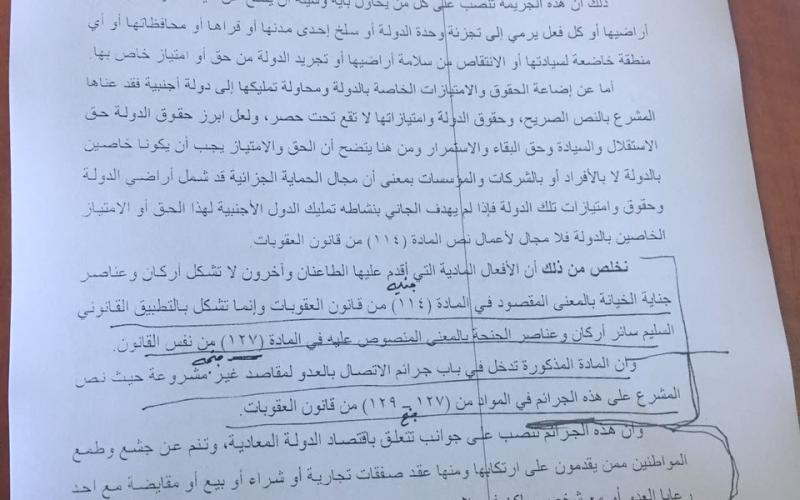 ذلك أن هذه الجريمة تنصب على كل من يحاول بأية وسيلة أن
أراضيها أو كل فعل يرمي إلى تجزئة وحدة الدولة أو سلخ إحدى مدنها أو قراها أو محافظاتها أو أي
منطقة خاضعة لسيادتها أو الانتقاص من سلامة أراضيها أو تجريد الدولة من حق أو امتياز خاص بها.
أما عن إضاعة الحقوق والامتيازات الخاصة بالدولة ومحاولة تمليكها إلى دولة أجنبية فقد عناها
المشرع بالنص الصريح، وحقوق الدولة وامتيازاتها لا تقع تحت حصر، ولعل ابرز حقوق الدولة حق
الاستقلال والسيادة وحق البقاء والاستمرار ومن هنا يتضح أن الحق والامتياز يجب أن يكونا خاصين
بالدولة لا بالأفراد أو بالشركات والمؤسسات بمعنى أن مجال الحماية الجزائية قد شمل أراضي الدولة
وحقوق وامتيازات تلك الدولة فإذا لم يهدف الجاني بنشاطه تمليك الدول الأجنبية لهذا الحق أو الامتياز
الخاصين بالدولة فلا مجال لأعمال نص المادة (١١٤) من قانون العقوبات.
نخلص من ذلك أن الأفعال المادية التي أقدم عليها الطاعنان وآخرون لا تشكل أركان وعناصر
جناية الخيانة بالمعنى المقصود في المادة (١١٤) من قانون العقوبات وإنما تشكل بالتطبيق القانوني
السليم سائر أركان وعناصر الجنحة بالمعنى المنصوص عليه في المادة (١٢٧) من نفس القانون.
وان المادة المذكورة تدخل في باب جرائم الاتصال بالعدو لمقاصد غير مشروعة حيث نص
المشرع على هذه الجرائم في المواد من (١٢٧ - ١٢٩) من قانون العقوبات.
وان هذه الجرائم تنصب على جوانب تتعلق باقتصاد الدولة المعادية، وتنم عن جشع وطمع
المواطنين ممن يقدمون على ارتكابها ومنها عقد صفقات تجارية أو شراء أو بيع أو مقايضة مع احد
رعايا العدو أو مع شخص